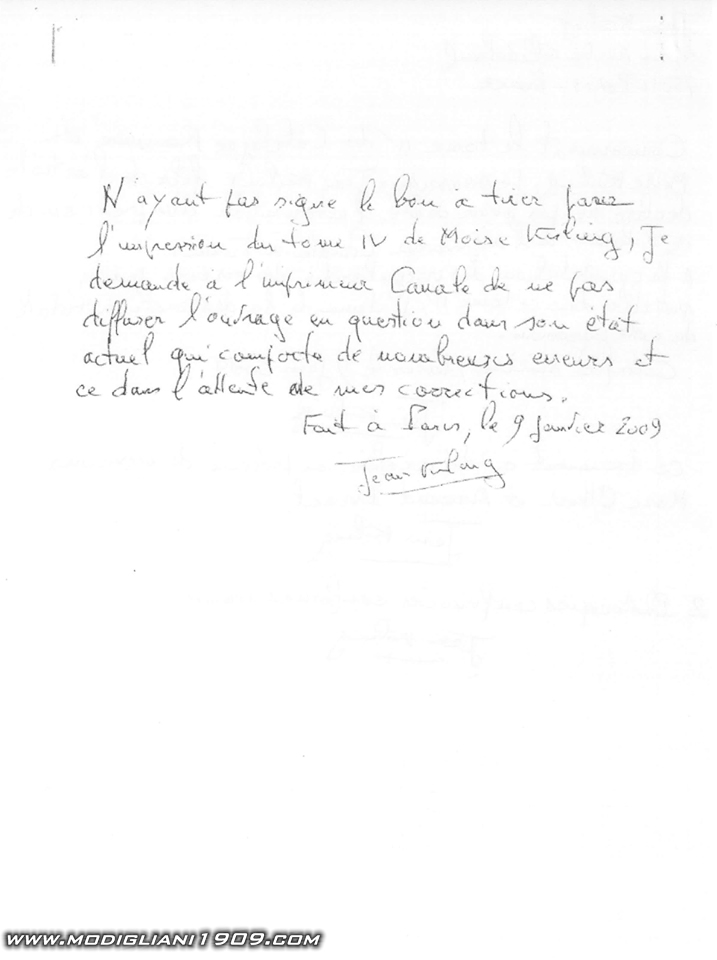 N'ayant pas signé le bon à tirer pour
l'impression du tome IV de Moïse Kisling, Je
demande à l'imprimeur Canale de ne pas
diffuser l'ouvrage en question dans son état
actuel qui comporte de nombreuses erreurs et
ce dans l'attente de mes corrections.
Fait à Paris, le 9 Janvier 2009
Jean Kisling
WWW.MODIGLIANI1909.COM